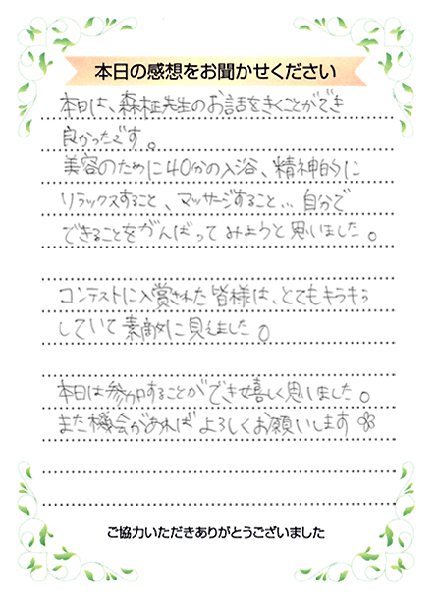 本日の感想をお聞かせください
本日は、森柾先生のお話をきくことができ
良かったです。
美容のために40分の入浴、精神的に
リラックスすること、マッサージすること… 自分で
できることをがんばってみようと思いました。
コンテストに入賞された皆様は、とてもキラキラ
していて素敵に見えました。
本日は参加することができ嬉しく思いました。
また機会があればよろしくお願いします
ご協力いただきありがとうございました